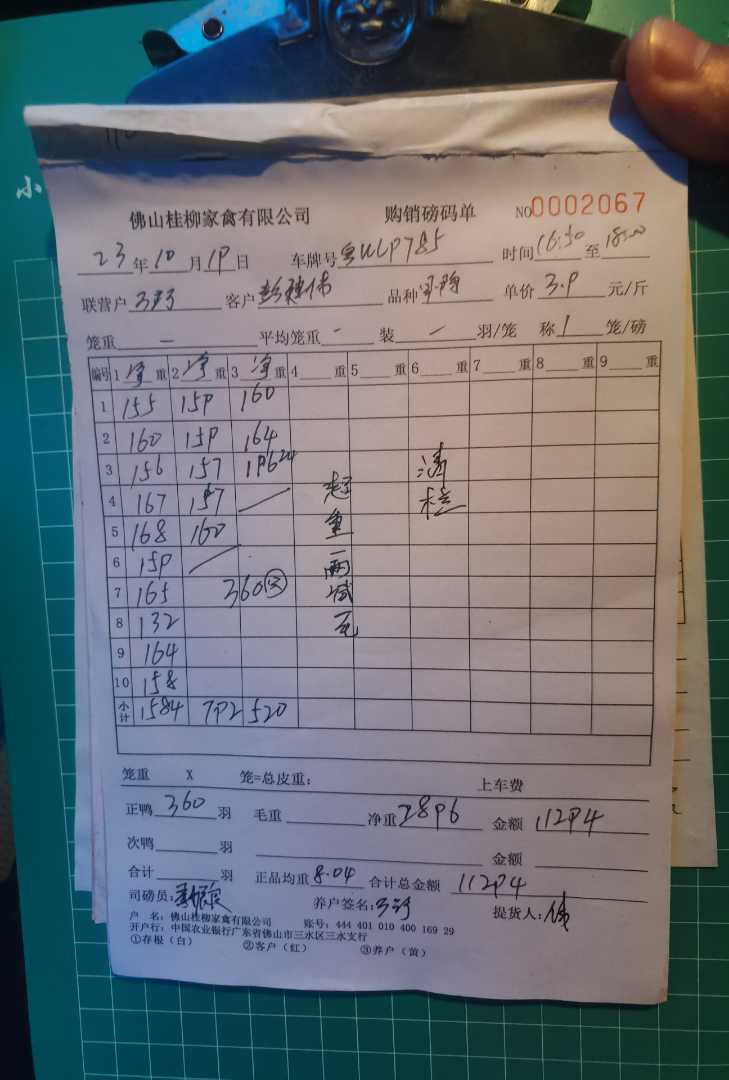 佛山桂柳家禽有限公司 购销磅码单 NO0002067
23年10月19日 车牌号 时间16:30至18:00
联营户 客户 品种 单价3.9元/斤
笼重 — 平均笼重 - 装 — 羽/笼 称 1 笼/磅
编号 1净重 2净重 3净重 4 重 5 重 6 重 7 重 8 重 9 重
1 155 159 160
2 160 159 164
3 156 157 196
4 167 157
5 168 160
6 159
7 165 360
8 132
9 164
10 158
小计 1584 792 520
笼重 X 笼=总皮重: 上车费
正鸭 360 羽 毛重 净重 2896 金额 11294
次鸭 羽 金额
合计 羽 正品均重 8.04 合计总金额 11294
司磅员: 养户签名: 提货人:
户 名: 佛山桂柳家禽有限公司 账号: 444 401 010 400 169 29
开户行: 中国农业银行广东省佛山市三水区三水支行
①存根（白） ②客户（红） ③养户（黄）